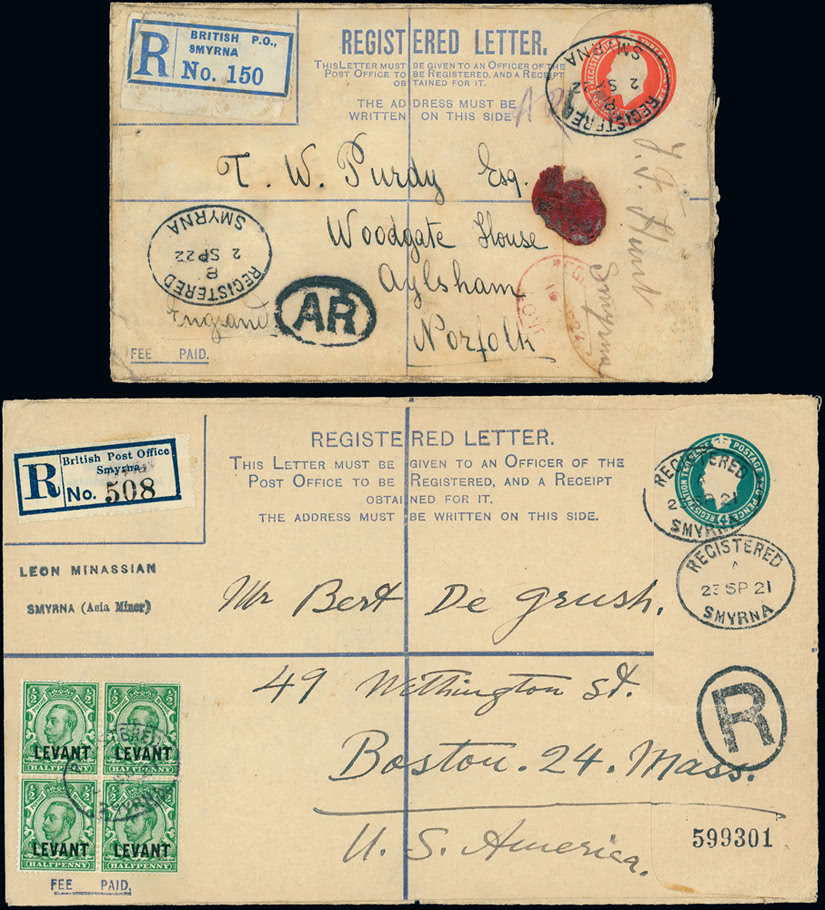 BRITISH P.O.,
SMYRNA
R No. 150
REGISTERED LETTER.
THIS LETTER MUST BE GIVEN TO AN OFFICER OF THE
POST OFFICE TO BE REGISTERED, AND A RECEIPT
OBTAINED FOR IT.
THE ADDRESS MUST BE
WRITTEN ON THIS SIDE.
AR
REGISTERED
2 SP 22
SMYRNA
T. W. Purdy Esq.
Woodgate House
Aylsham
Norfolk
England
Smyrna
REGISTERED
B
2 SP 22
SMYRNA
AR
FEE PAID.
British Post Office
Smyrna
R No. 508
REGISTERED LETTER.
THIS LETTER MUST BE GIVEN TO AN OFFICER OF THE
POST OFFICE TO BE REGISTERED, AND A RECEIPT
OBTAINED FOR IT.
THE ADDRESS MUST BE WRITTEN ON THIS SIDE.
POSTAGE
REGISTRATION
REGISTERED
SMYRNA
REGISTERED
A
23 SP 21
SMYRNA
LEON MINASSIAN
SMYRNA (Asia Minor)
Mr Bert De Grush.
49 Withington St.
Boston. 24. Mass.
U. S. America.
R
599301
LEVANT
HALFPENNY
LEVANT
HALFPENNY
LEVANT
HALFPENNY
LEVANT
HALFPENNY
FEE PAID.